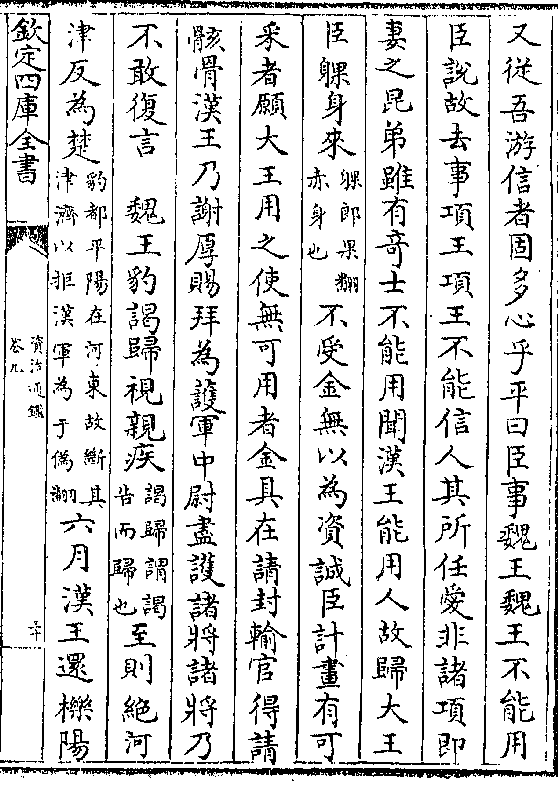 又從吾游信者固多心乎平曰臣事魏王魏王不能用
臣說故去事項王項王不能信人其所任愛非諸項即
妻之昆弟雖有奇士不能用聞漢王能用人故歸大王
臣躶身來躶郎果翻赤身也不受金無以為資誠臣計畫有可
采者願大王用之使無可用者金具在請封輸官得請
骸骨漢王乃謝厚賜拜為護軍中尉盡護諸將諸將乃
不敢復言　魏王豹謁歸視親疾謁歸謂謁告而歸也至則絶河
津反為楚豹都平陽在河東故斷其津濟以拒漢軍為于偽翻六月漢王還櫟陽
欽定四庫全書
資治通鑑
卷九